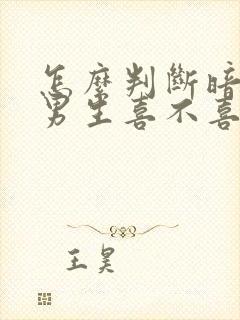 怎麼判斷暗
男生喜不喜
王昊